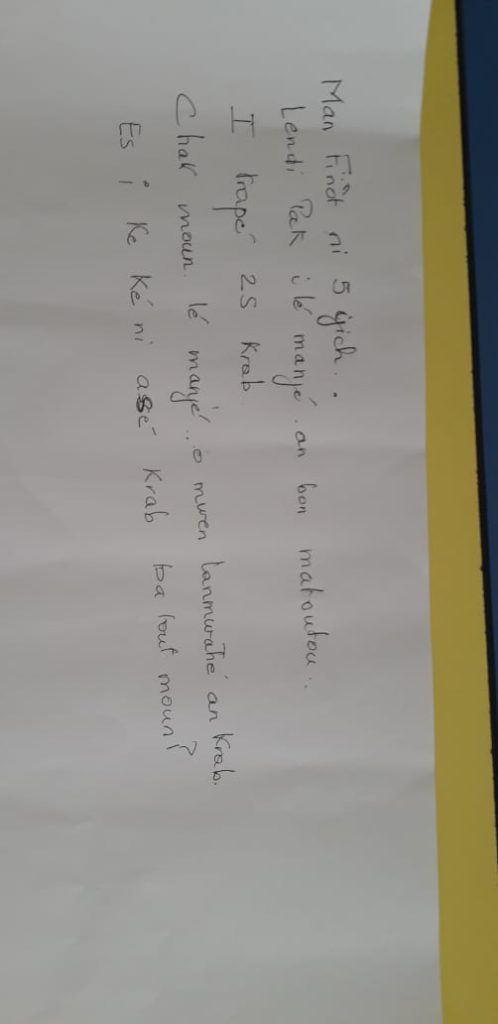 Man Finot ni 5 yich..
Lendi Pak i lé manjé. an bon matoutou..
I trapé 25 Krab
Chak moun. lé manjé.. o mwen lanmwatié an Krab.
Es i ke ké ni asé Krab ba tout moun?